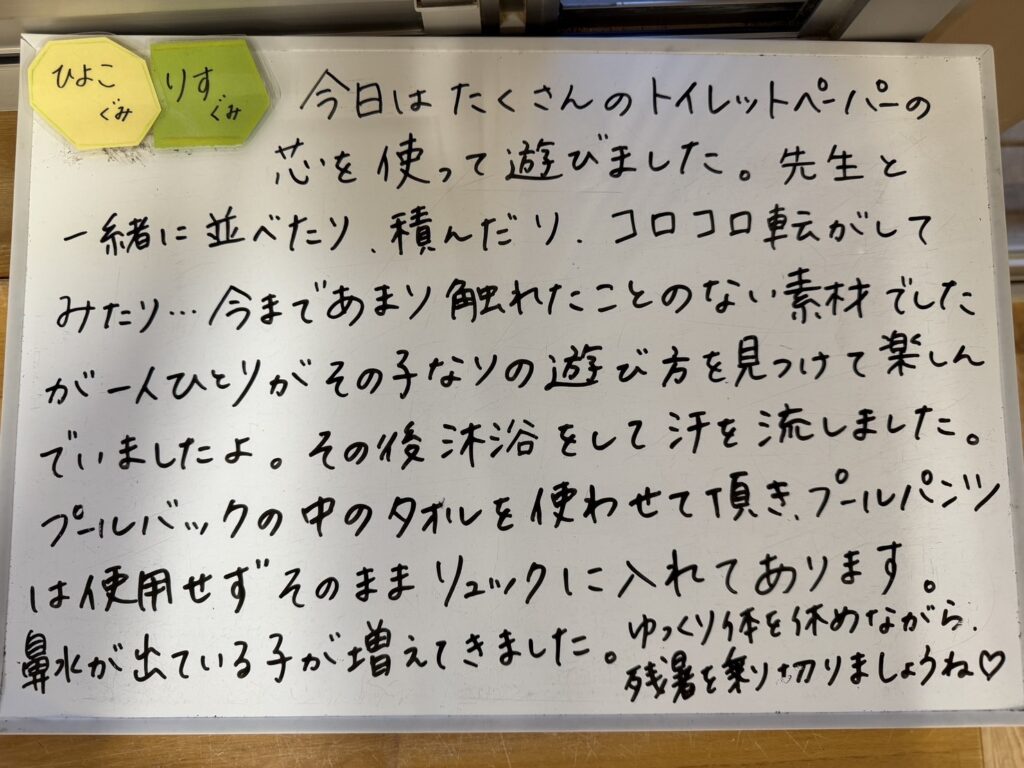 ひよこ
ぐみ
りす
ぐみ
今日はたくさんのトイレットペーパーの
芯を使って遊びました。先生と
一緒に並べたり、積んだり、コロコロ転がして
みたり…今まであまり触れたことのない素材でした
が一人ひとりがその子なりの遊び方を見つけて楽しん
でいましたよ。その後沐浴をして汗を流しました。
プールバックの中のタオルを使わせて頂き、プールパンツ
は使用せずそのままリュックに入れてあります。
鼻水が出ている子が増えてきました。ゆっくり体を休めながら、
残暑を乗り切りましょうね♡